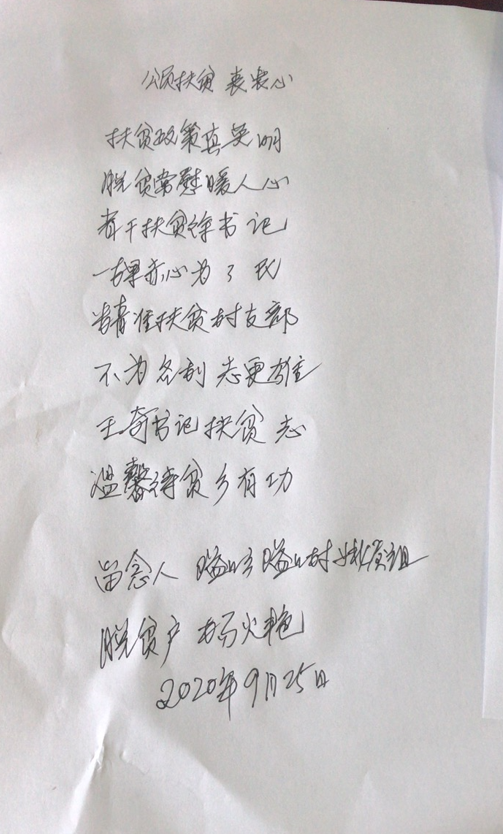 颂扶贫 表衷心
扶贫政策真英明
脱贫常慰暖人心
者干扶贫徐书记
一颗赤心为了民
精准扶贫村支部
不为名利志更雄
王奇书记扶贫志
温馨待贫乡有功
留念人 村
脱贫户 杨火艳
2020年9月25日